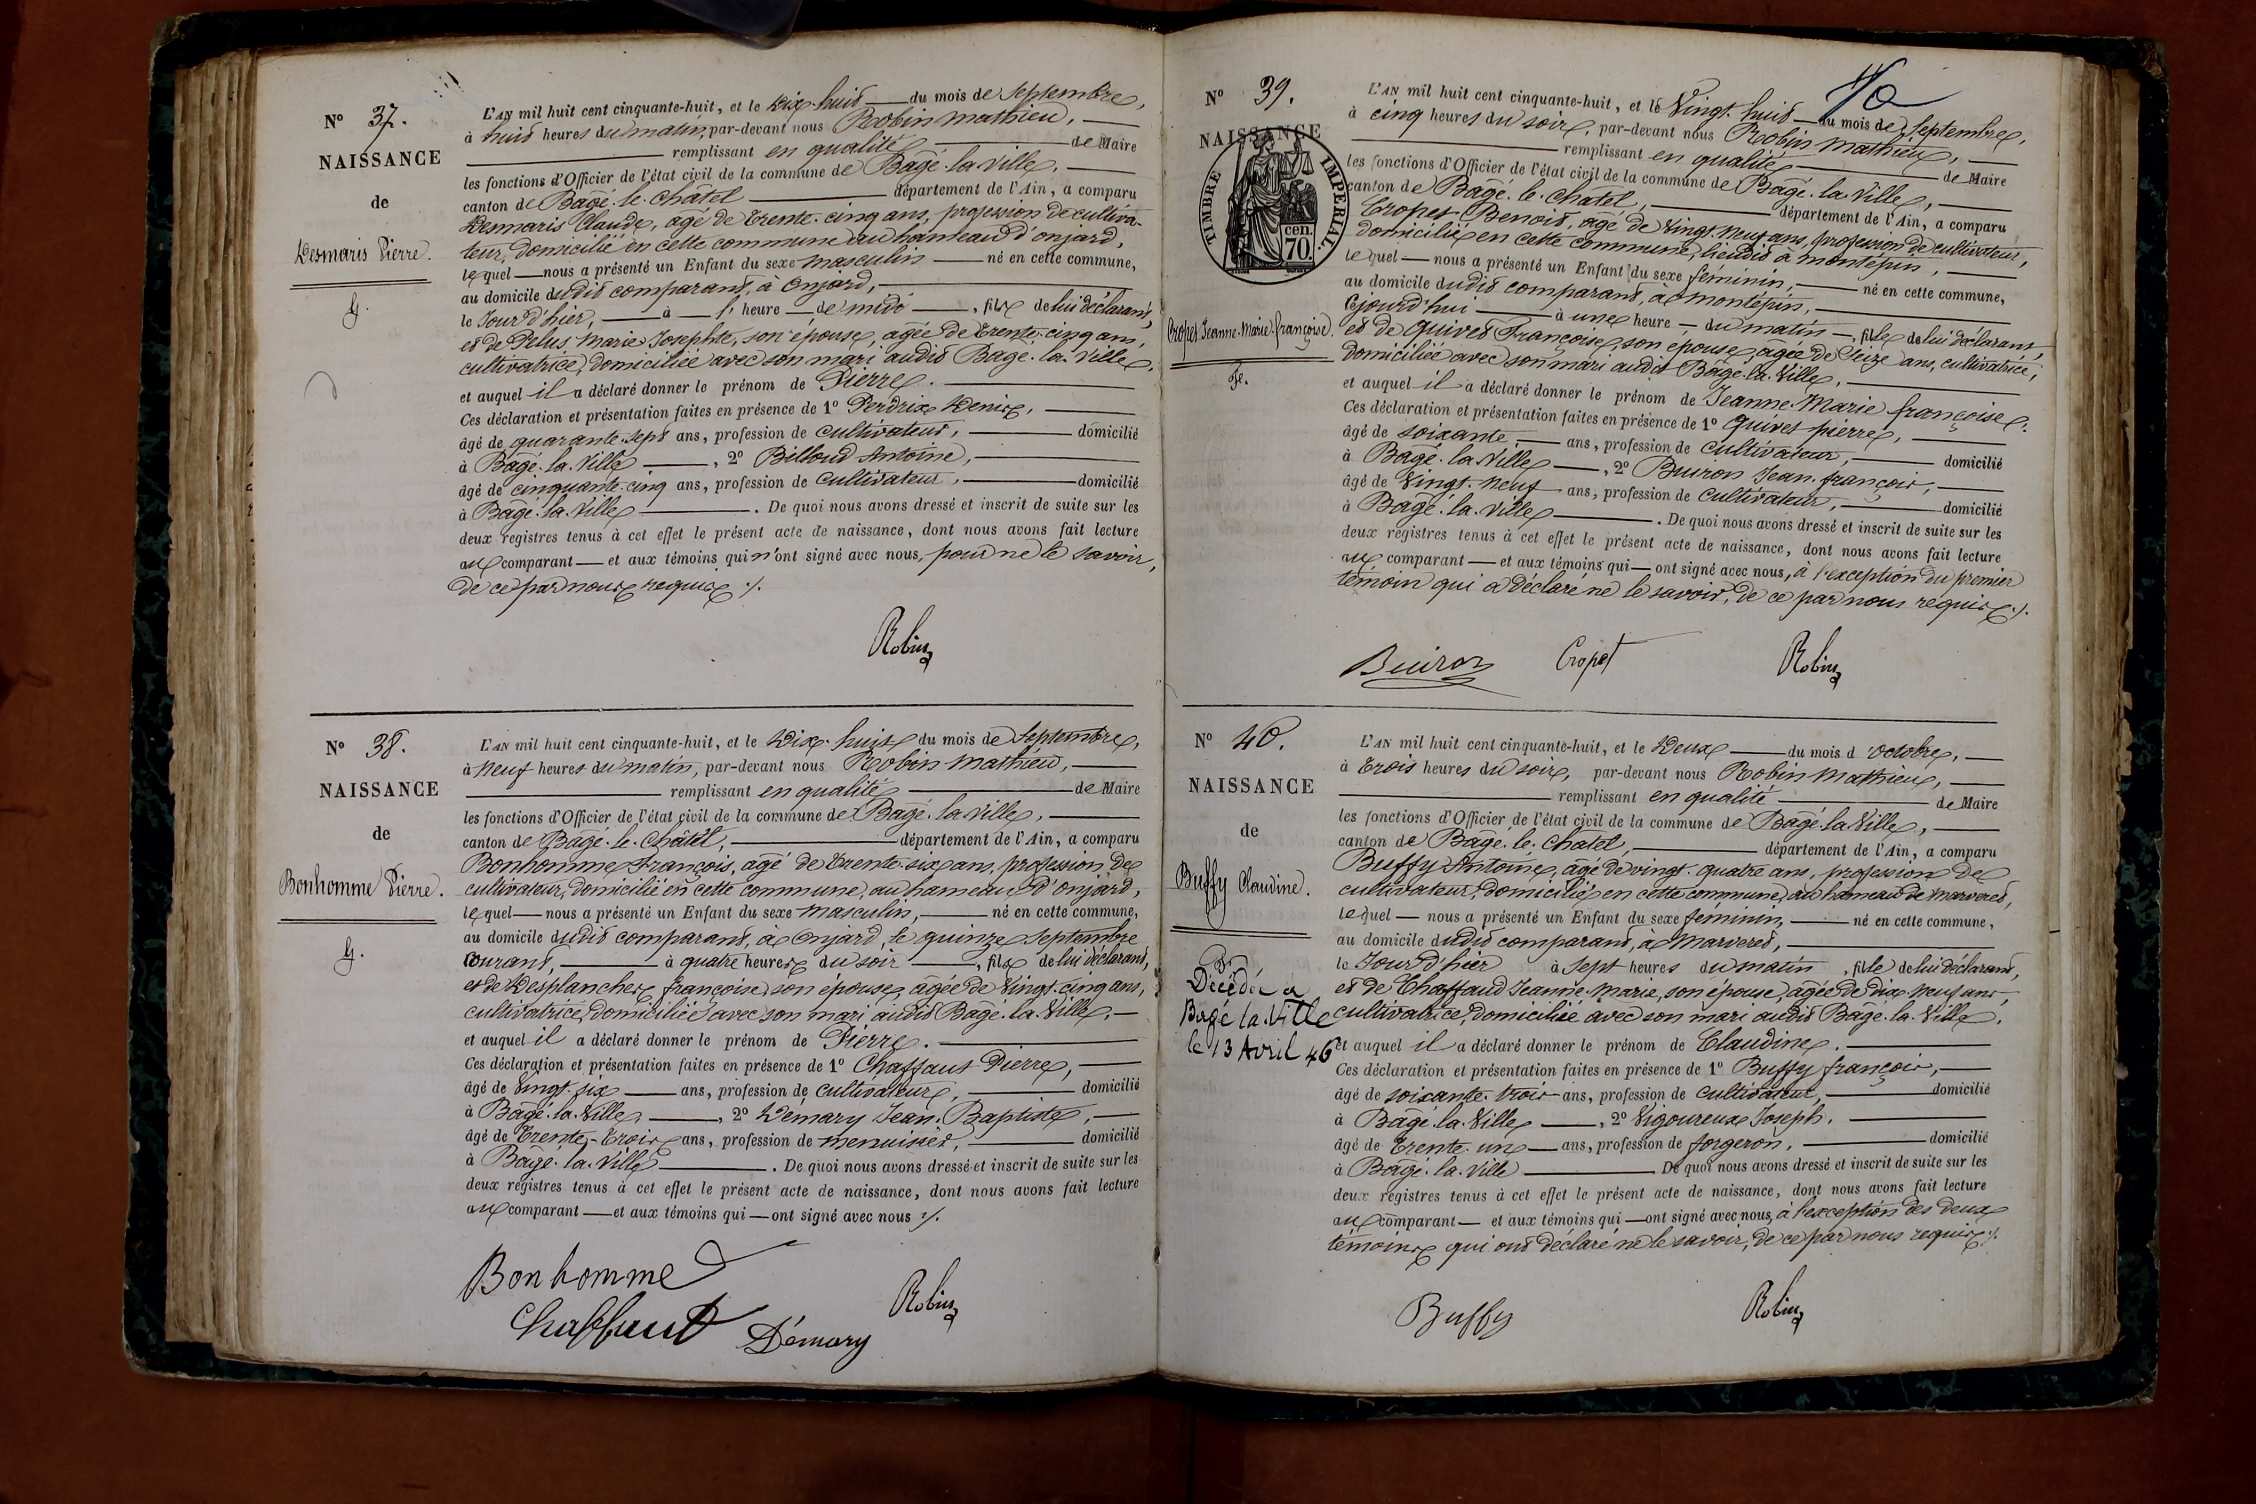 N° 37.
NAISSANCE
de
Desmaris Pierre.
G.
L'AN mil huit cent cinquante-huit, et le Dix-huit du mois de Septembre,
à huit heures du matin, par-devant nous Robin Mathieu,
remplissant en qualité de Maire
les fonctions d'Officier de l'état civil de la commune de Bagé-la-Ville,
canton de Bagé-le-Châtel département de l'Ain, a comparu
Desmaris Claude, agé de trente-cinq ans, profession de cultiva-
teur, domicilié en cette commune au hameau d'onjard,
lequel nous a présenté un Enfant du sexe masculin né en cette commune,
au domicile dudit comparant, à Onjard,
le Jour d'hier, à l' heure de midi, fils de lui déclarant,
et de Pelus Marie Josephte, son épouse, agée de trente-cinq ans,
cultivatrice, domiciliée avec son mari audit Bagé-la-Ville,
et auquel il a déclaré donner le prénom de Pierre.
Ces déclaration et présentation faites en présence de 1° Perdrix Denis,
âgé de quarante-sept ans, profession de cultivateur, domicilié
à Bagé-la-Ville, 2° Billoud Antoine,
âgé de cinquante-cinq ans, profession de cultivateur, domicilié
à Bagé-la-Ville. De quoi nous avons dressé et inscrit de suite sur les
deux registres tenus à cet effet le présent acte de naissance, dont nous avons fait lecture
au comparant et aux témoins qui n'ont signé avec nous, pour ne le savoir,
de ce par nous requis ./.
Robin
N° 38.
NAISSANCE
de
Bonhomme Pierre.
G.
L'AN mil huit cent cinquante-huit, et le Dix-huit du mois de Septembre,
à neuf heures du matin, par-devant nous Robin Mathieu,
remplissant en qualité de Maire
les fonctions d'Officier de l'état civil de la commune de Bagé-la-Ville,
canton de Bagé-le-Châtel, département de l'Ain, a comparu
Bonhomme François, agé de trente-six ans, profession de
cultivateur, domicilié en cette commune, au hameau d'onjard,
lequel nous a présenté un Enfant du sexe masculin, né en cette commune,
au domicile dudit comparant, à Onjard, le quinze Septembre
courant, à quatre heures du soir, fils de lui déclarant,
et de Desplanches françoise, son épouse, agée de Vingt-cinq ans,
cultivatrice, domiciliée avec son mari audit Bagé-la-Ville,
et auquel il a déclaré donner le prénom de Pierre.
Ces déclaration et présentation faites en présence de 1° Chaffaut Pierre,
âgé de Vingt-six ans, profession de cultivateur, domicilié
à Bagé-la-Ville, 2° Démary Jean-Baptiste,
âgé de Trente-Trois ans, profession de menuisier, domicilié
à Bagé-la-Ville. De quoi nous avons dressé et inscrit de suite sur les
deux registres tenus à cet effet le présent acte de naissance, dont nous avons fait lecture
au comparant et aux témoins qui ont signé avec nous ./.
Bonhomme
Robin
Chaffaut Démary
N° 39.
NAISSANCE
TIMBRE IMPERIAL
cen.
70.
Cropet Jeanne-Marie françoise.
F.
L'AN mil huit cent cinquante-huit, et le Vingt-huit du mois de Septembre,
à cinq heures du soir, par-devant nous Robin Mathieu,
remplissant en qualité de Maire
les fonctions d'Officier de l'état civil de la commune de Bagé-la-Ville,
canton de Bagé-le-Chatel, département de l'Ain, a comparu
Cropet Benoit, agé de Vingt-neuf ans, profession de cultivateur,
domicilié en cette commune, lieudit à montépin,
lequel nous a présenté un Enfant du sexe féminin, né en cette commune,
au domicile dudit comparant, à montépin,
cejourd'hui à une heure du matin, fille de lui déclarant,
et de Quivet Françoise, son épouse, agée de Seize ans, cultivatrice,
domiciliée avec son mari audit Bagé-la-Ville,
et auquel il a déclaré donner le prénom de Jeanne-Marie françoise.
Ces déclaration et présentation faites en présence de 1° Quivet pierre,
âgé de soixante ans, profession de cultivateur, domicilié
à Bagé-la-Ville, 2° Buiron Jean-françois,
âgé de Vingt-neuf ans, profession de cultivateur, domicilié
à Bagé-la-Ville. De quoi nous avons dressé et inscrit de suite sur les
deux registres tenus à cet effet le présent acte de naissance, dont nous avons fait lecture
au comparant et aux témoins qui ont signé avec nous, à l'exception du premier
témoin qui a déclaré ne le savoir, de ce par nous requis ./.
Buiron Cropet Robin
N° 40.
NAISSANCE
de
Buffy Claudine.
F.
Décédée à
Bagé la Ville
le 13 Avril 46
L'AN mil huit cent cinquante-huit, et le Deux du mois d'octobre,
à trois heures du soir, par-devant nous Robin Mathieu,
remplissant en qualité de Maire
les fonctions d'Officier de l'état civil de la commune de Bagé-la-Ville,
canton de Bagé-le-Chatel, département de l'Ain, a comparu
Buffy Antoine, agé de vingt-quatre ans, profession de
cultivateur, domicilié en cette commune, au hameau de marveret,
lequel nous a présenté un Enfant du sexe feminin, né en cette commune,
au domicile dudit comparant, à Marveret,
le Jour d'hier à Sept heures du matin, fille de lui déclarant,
et de Chaffaud Jeanne-Marie, son épouse, agée de dix-neuf ans,
cultivatrice, domiciliée avec son mari audit Bagé-la-Ville,
et auquel il a déclaré donner le prénom de Claudine.
Ces déclaration et présentation faites en présence de 1° Buffy françois,
âgé de soixante-trois ans, profession de cultivateur, domicilié
à Bagé-la-Ville, 2° Vigoureux Joseph,
âgé de trente-un ans, profession de forgeron, domicilié
à Bagé-la-Ville. De quoi nous avons dressé et inscrit de suite sur les
deux registres tenus à cet effet le présent acte de naissance, dont nous avons fait lecture
au comparant et aux témoins qui ont signé avec nous, à l'exception des deux
témoins qui ont déclaré ne le savoir, de ce par nous requis ./.
Buffy Robin